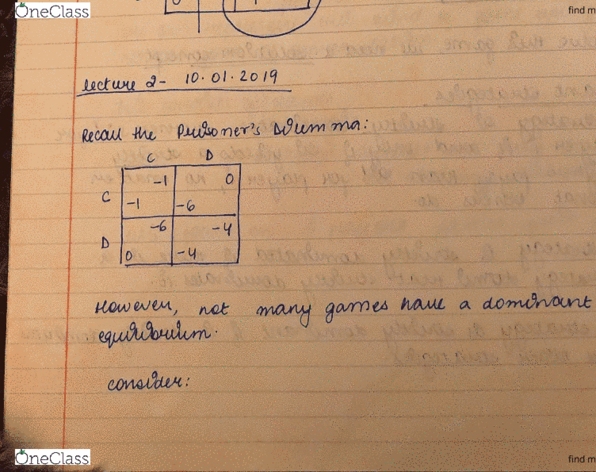 OneClass
find m
lecture 2- 10.01.2019
Recall the Prisoner's Dilemma:
C D
C -1 0
-1 -6
D -6 -4
0 -4
However, not many games have a dominant
equilibrium.
consider:
OneClass
find m